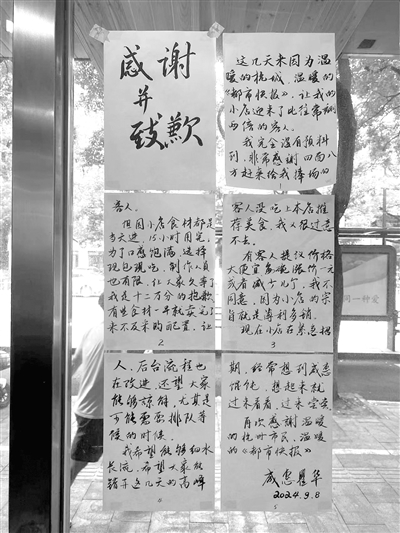 感谢
并
致歉
这几天来因为温
暖的杭城、温暖的
《都市快报》，让我的
小店迎来了比往常翻
两倍的客人。
我完全没有预料
到，非常感谢四面八
方赶来给我捧场的
1
客人。
但因小店食材都是
当天进，15小时用完，
为了口感饱满，选择
现包现吃，制作人员
也有限，让大家久等了
我是十二万分的抱歉
有些食材一早就卖完了
来不及采购配置，让
2
客人没吃上本店推
荐美食，我又很过意
不去。
有客人提议价格
太便宜 涨价一元
或者减少几个，我不
同意，因为小店的宗
旨就是薄利多销。
现在小店在紧急招
3
人，后台流程也
在改进，还望大家
能够谅解，尤其是
可能需要排队等
候的时候。
我希望能够细水
长流，希望大家能
错开这几天的高峰
4
期，经常想到戚忠
馄饨，想起来就
过来看看，过来尝尝
再次感谢温暖
的杭州市民，温暖
的《都市快报》
戚忠 华
2024.9.8
5
同一种爱